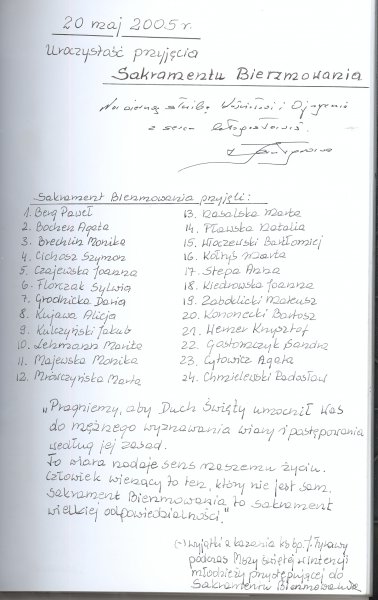 20 maj 2005 r.
Uroczystość przyjęcia
Sakramentu Bierzmowania
Na wierną służbę Kościołowi i Ojczyźnie
z serca błogosławię
Sakrament Bierzmowania przyjęli:
1. Berg Paweł
2. Bochen Agata
3. Brechlin Monika
4. Cichosz Szymon
5. Czajewska Joanna
6. Florczak Sylwia
7. Grodnicka Daria
8. Kujawa Alicja
9. Kulczyński Jakub
10. Lehmann Marita
11. Majewska Monika
12. Mrówczyńska Marta
13. Nasalska Marta
14. Pławska Natalia
15. Włoczewski Bartłomiej
16. Kołtyś Marta
17. Stępa Anna
18. Kiedrowska Joanna
19. Zabdklicki Mateusz
20. Kononecki Bartosz
21. Werner Krzysztof
22. Gąstorczyk Sandra
23. Cytowicz Agata
24. Chmielewski Radosław
„Pragniemy, aby Duch Święty umocnił Was
do mężnego wyznawania wiary i postępowania
według jej zasad.
To wiara nadaje sens naszemu życiu.
Człowiek wierzący to ten, który nie jest sam.
Sakrament Bierzmowania to sakrament
wielkiej odpowiedzialności."
(-) wyjątki z kazania ks. bp. J. Tyrawy
podczas Mszy świętej w intencji
młodzieży przystępującej do
Sakramentu Bierzmowania